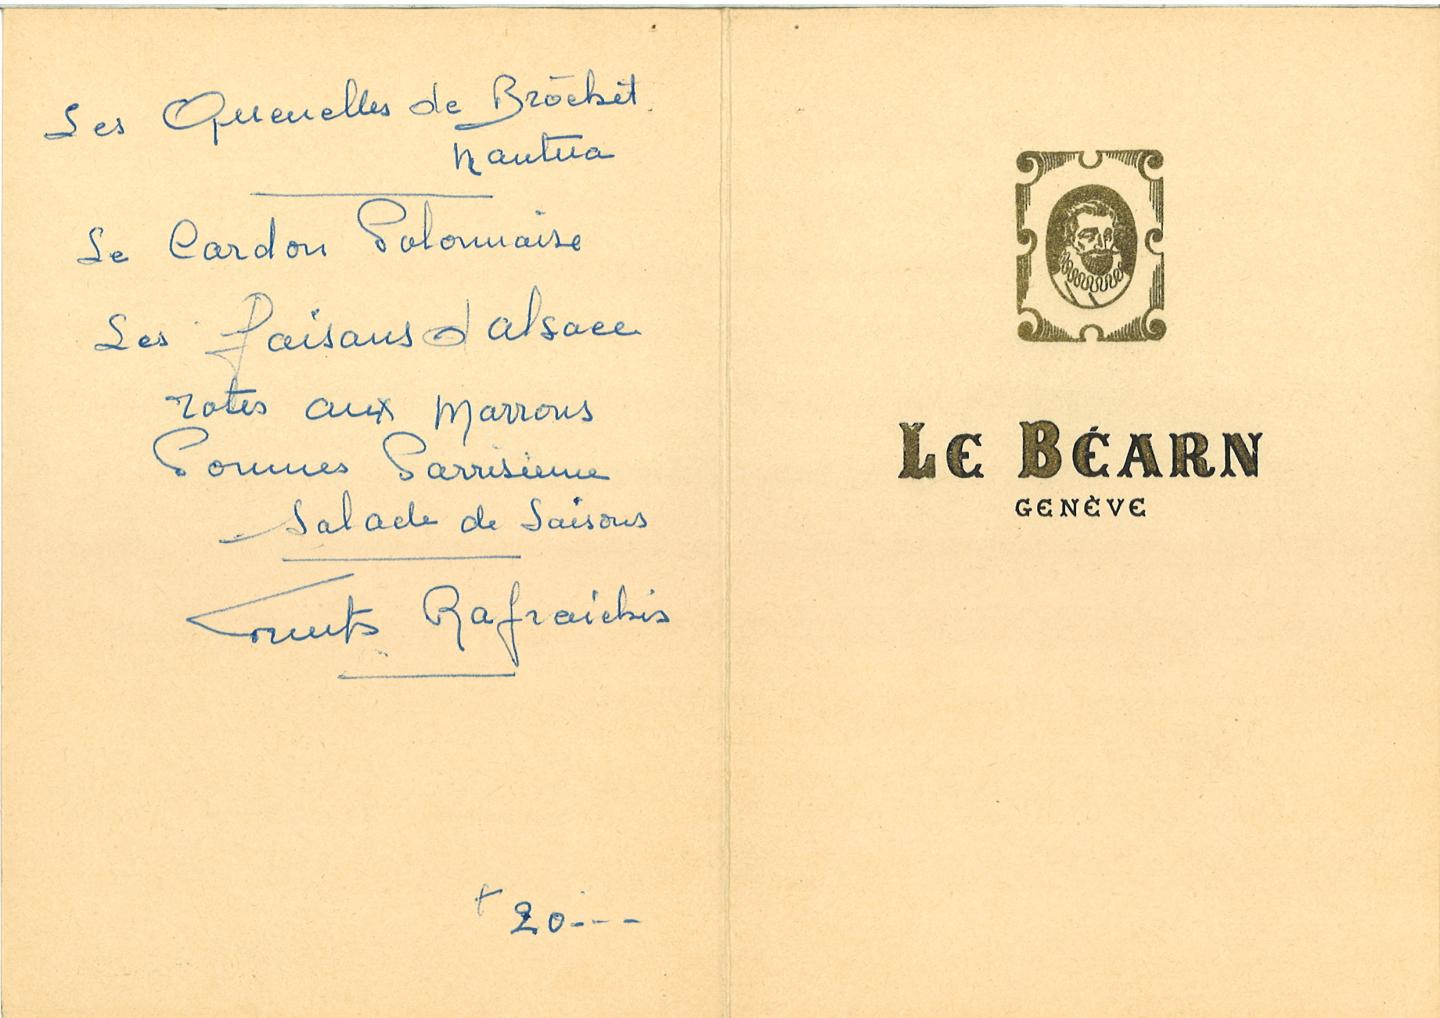 Les Quenelles de Brochet
Nantua
Le Cardon Polonnaise
Les faisans d'alsace
rotes aux Marrons
Pommes Parrisienne
Salade de Saisons
Fruits Rafraichis
20.---
LE BÉARN
GENÈVE